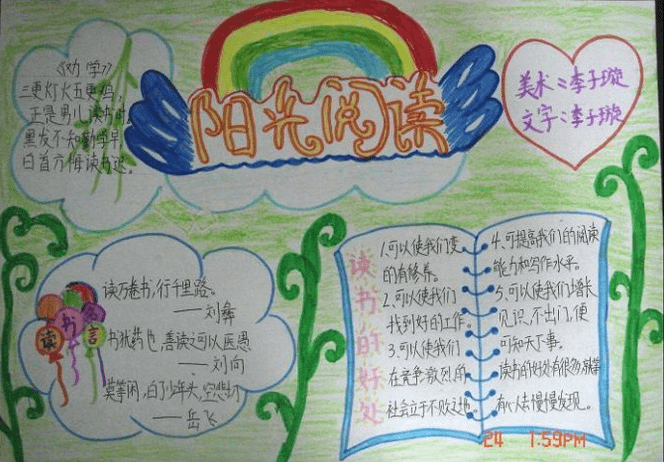 《劝学》
三更灯火五更鸡,
正是男儿读书时。
黑发不知勤学早,
白首方悔读书迟。
阳光阅读
美术:李子璇
文字:李子璇
读书名言
读万卷书,行千里路。
——刘彝
书犹药也,善读之可以医愚
——刘向
莫等闲,白了少年头,空悲切
——岳飞
读书的好处
1.可以使我们变
的有修养。
2.可以使我们
找到好的工作。
3.可以使我们
在竞争激烈的
社会立于不败之地。
4.可提高我们的阅读
能力和写作水平。
5.可以使我们增长
见识,不出门,便
可知天下事。
读书的好处有很多,就等
有心人去慢慢发现。
24 1:59PM